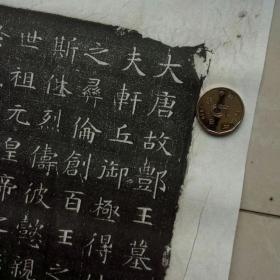 大唐故酆王墓
夫軒丘御極得
之彝倫創百王之
斯休烈儔彼懿親
世祖元皇帝之